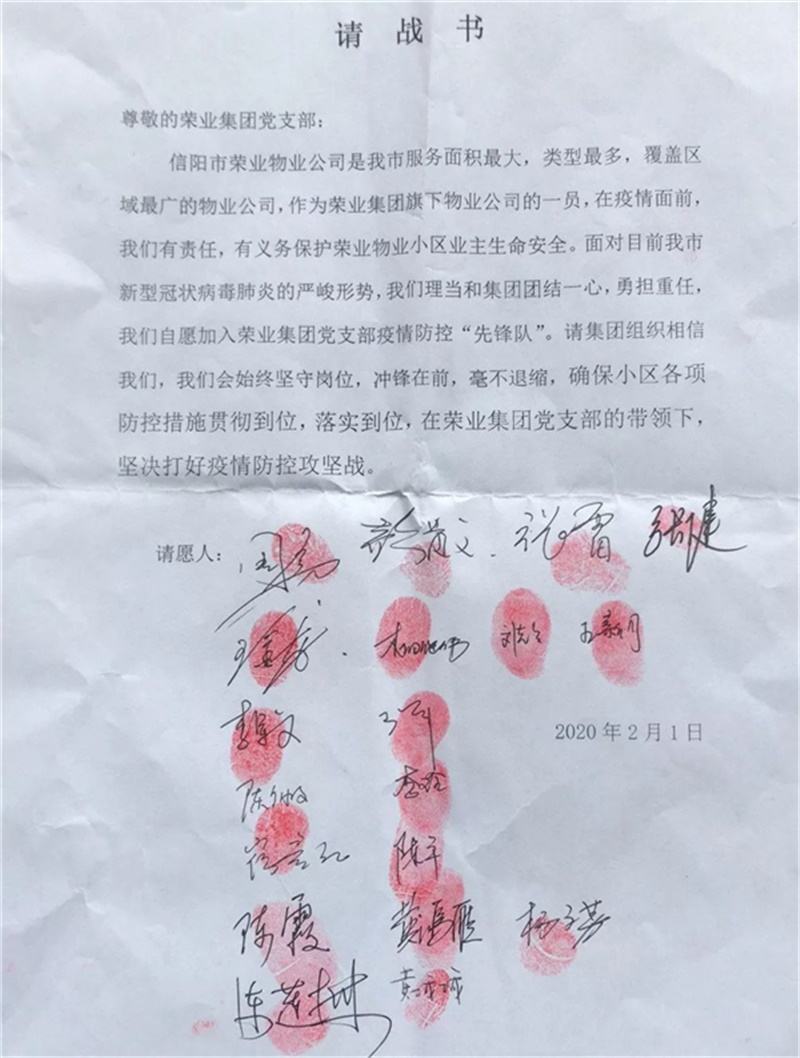 请战书
尊敬的荣业集团党支部：
信阳市荣业物业公司是我市服务面积最大，类型最多，覆盖区
域最广的物业公司，作为荣业集团旗下物业公司的一员，在疫情面前，
我们有责任，有义务保护荣业物业小区业主生命安全。面对目前我市
新型冠状病毒肺炎的严峻形势，我们理当和集团团结一心，勇担重任，
我们自愿加入荣业集团党支部疫情防控“先锋队”。请集团组织相信
我们，我们会始终坚守岗位，冲锋在前，毫不退缩，确保小区各项
防控措施贯彻到位，落实到位，在荣业集团党支部的带领下，
坚决打好疫情防控攻坚战。
请愿人：
张建
2020年2月1日
陈霞
陈莲林